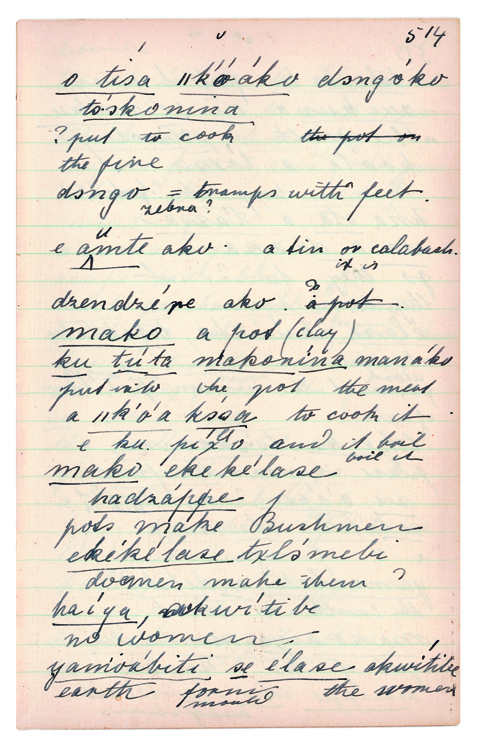 514
o tísa ǁk'óáko dsngóko
tóskonina
? put to cook the pot on
the fire
dsngo = tramps with feet.
zebra?
e ámte ako. a tin or calabash.
it is
dzendzére ako. a pot.
mako a pot (clay)
ku túta makonína manáko
put into the pot the meat
a ǁk'óa kssa to cook it.
e ku. and it boil
boil it
mako ekekélase
hadzáppe
pots make Bushmen
ekékélase txlsmebi
do men make them ?
haíya, akwítibe
no women.
yamoábiti se élase akwítibe
earth form the women
mould